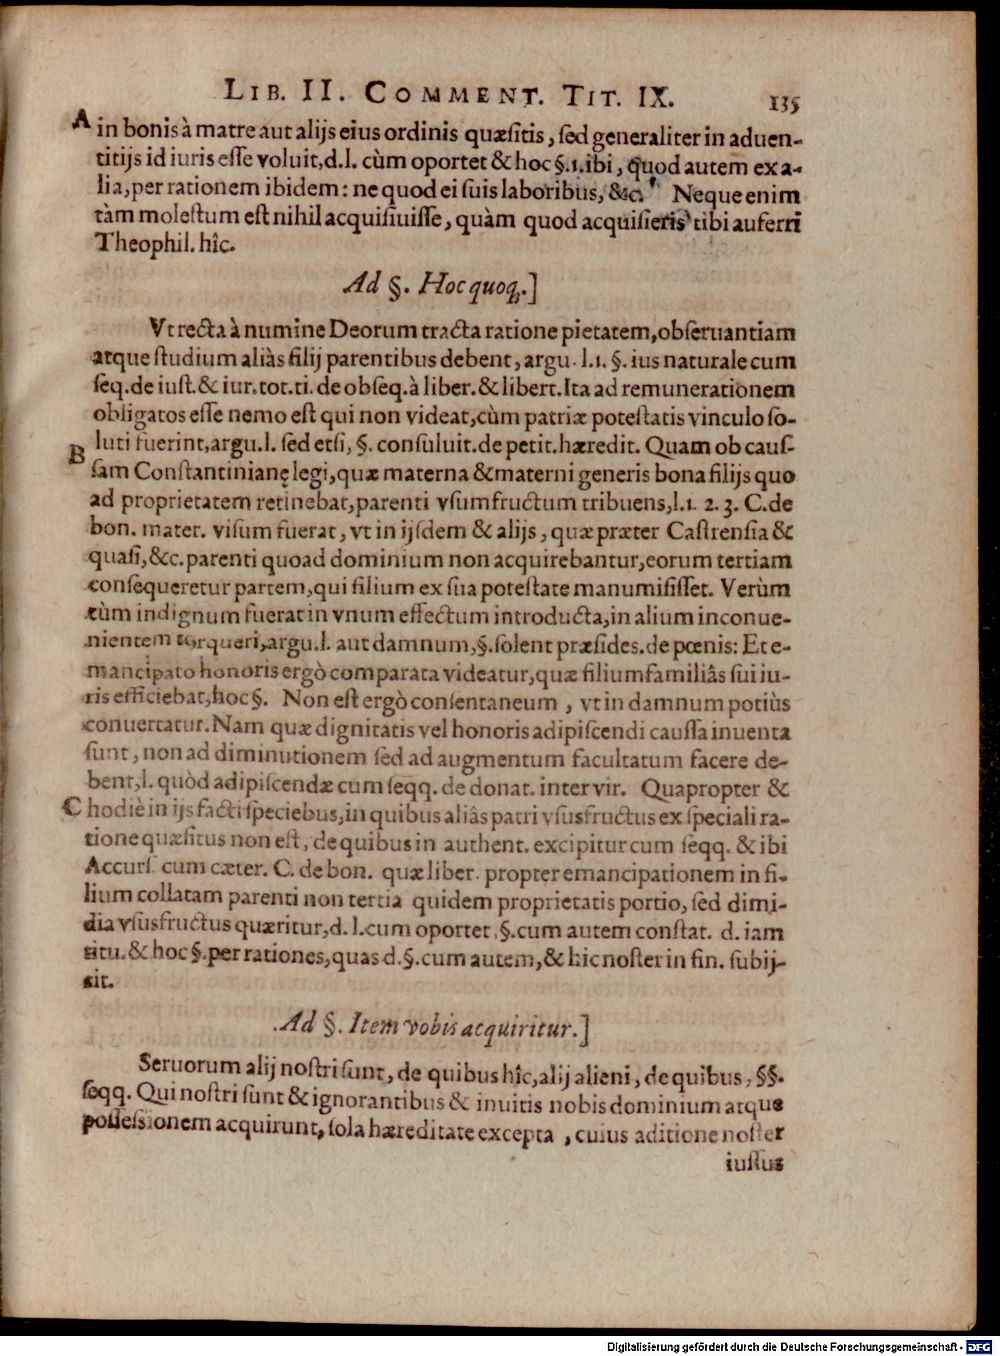 LIB. II. COMMENT. TIT. IX. 135
A in bonis à matre aut alijs eius ordinis quæsitis, sed generaliter in aduen-
titijs id iuris esse voluit, d.l. cùm oportet & hoc §.1. ibi, quod autem ex a-
lia, per rationem ibidem: ne quod ei suis laboribus, &c. Neque enim
tàm molestum est nihil acquisiuisse, quàm quod acquisieris tibi auferri
Theophil. hîc.
Ad §. Hoc quoq.]
Vt recta à numine Deorum tracta ratione pietatem, obseruantiam
atque studium aliàs filij parentibus debent, argu. l.1. §. ius naturale cum
seq. de iust. & iur. tot. ti. de obseq. à liber. & libert. Ita ad remunerationem
obligatos esse nemo est qui non videat, cùm patriæ potestatis vinculo so-
luti fuerint, argu. l. sed etsi, §. consuluit. de petit. hæredit. Quam ob caus-
B sam Constantinianę legi, quæ materna & materni generis bona filijs quo
ad proprietatem retinebat, parenti vsumfructum tribuens, l.1. 2. 3. C. de
bon. mater. visum fuerat, vt in ijsdem & alijs, quæ præter Castrensia &
quasi, &c. parenti quoad dominium non acquirebantur, eorum tertiam
consequeretur partem, qui filium ex sua potestate manumisisset. Verùm
cùm indignum fuerat in vnum effectum introducta, in alium inconue-
nientem torqueri, argu. l. aut damnum, §. solent præsides. de pœnis: Et e-
mancipato honoris ergò comparata videatur, quæ filiumfamiliâs sui iu-
ris efficiebat, hoc §. Non est ergò consentaneum, vt in damnum potiùs
conuertatur. Nam quæ dignitatis vel honoris adipiscendi caussa inuenta
sunt, non ad diminutionem sed ad augmentum facultatum facere de-
bent, l. quòd adipiscendæ cum seqq. de donat. inter vir. Quapropter &
C hodiè in ijs facti speciebus, in quibus aliâs patri vsusfructus ex speciali ra-
tione quæsitus non est, de quibus in authent. excipitur cum seqq. & ibi
Accurs. cum cæter. C. de bon. quæ liber. propter emancipationem in fi-
lium collatam parenti non tertia quidem proprietatis portio, sed dimi-
dia vsusfructus quæritur, d. l. cum oportet, §. cum autem constat. d. iam
titu. & hoc §. per rationes, quas d. §. cum autem, & hic noster in fin. subij-
cit.
Ad §. Item vobis acquiritur.]
Seruorum alij nostri sunt, de quibus hîc, alij alieni, de quibus, §§.
seqq. Qui nostri sunt & ignorantibus & inuitis nobis dominium atque
possessionem acquirunt, sola hæreditate excepta, cuius aditione noster
iussus
Digitalisierung gefördert durch die Deutsche Forschungsgemeinschaft - DFG